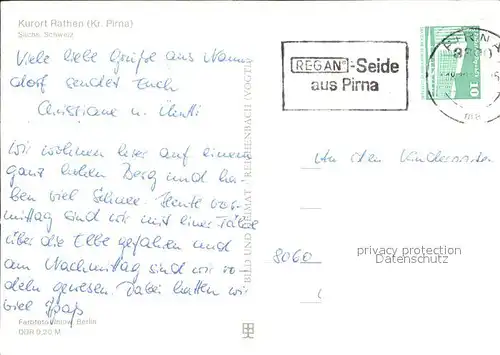 Kurort Rathen (Kr. Pirna)
Sächs. Schweiz
Viele liebe Grüße aus
dorf sendet Euch
Christiane u.
Wir wohnen hier auf einem
ganz hohen Berg und ha-
ben viel Schnee. Heute vor-
mittag sind wir mit einer Fähre
über die Elbe gefahren und
am Nachmittag sind wir ro-
deln gewesen. Dabei hatten wir
viel Spaß
Berlin
DDR 0,20 M
BILD UND HEIMAT REICHENBACH (VOGTL)
REGAN®-Seide
aus Pirna
PIRNA
10
An den Kindergarten
8060
privacy protection
Datenschutz